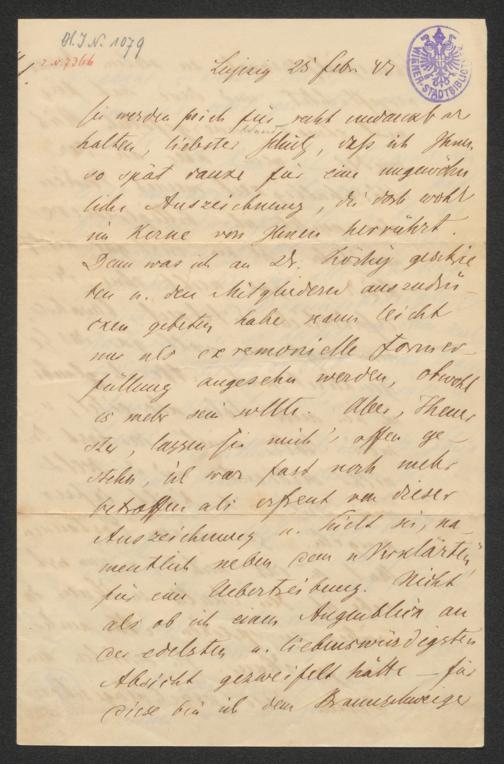 H. I. N. 1079
Z. N. 7366
WIENER STADTBIBLIOTHEK
Leipzig 25 Febr. 47
Sie werden mich für recht undankbar
halten, liebster Schulz, daß ich Ihnen
so spät danke für eine ungewöhn
liche Auszeichnung, die doch wohl
im Kerne von Ihnen herrührt.
Denn was ich an Dr. Köchy geschrie
ben u. den Mitgliedern auszudrü-
cken gebeten habe kann leicht
nur als ceremonielle Former-
füllung angesehn werden, obwohl
es mehr sein sollte. Aber, Theuer
ster, lassen Sie mich's offen ge-
stehn, ich war fast noch mehr
betroffen als erfreut von dieser
Auszeichnung u. hielt sie, na-
mentlich neben dem "Verklärten"
für eine Uebertreibung. Nicht
als ob ich einen Augenblick an
der edelsten u. liebenswürdigsten
Absicht gezweifelt hätte – für
diese bin ich dem Braunschweiger